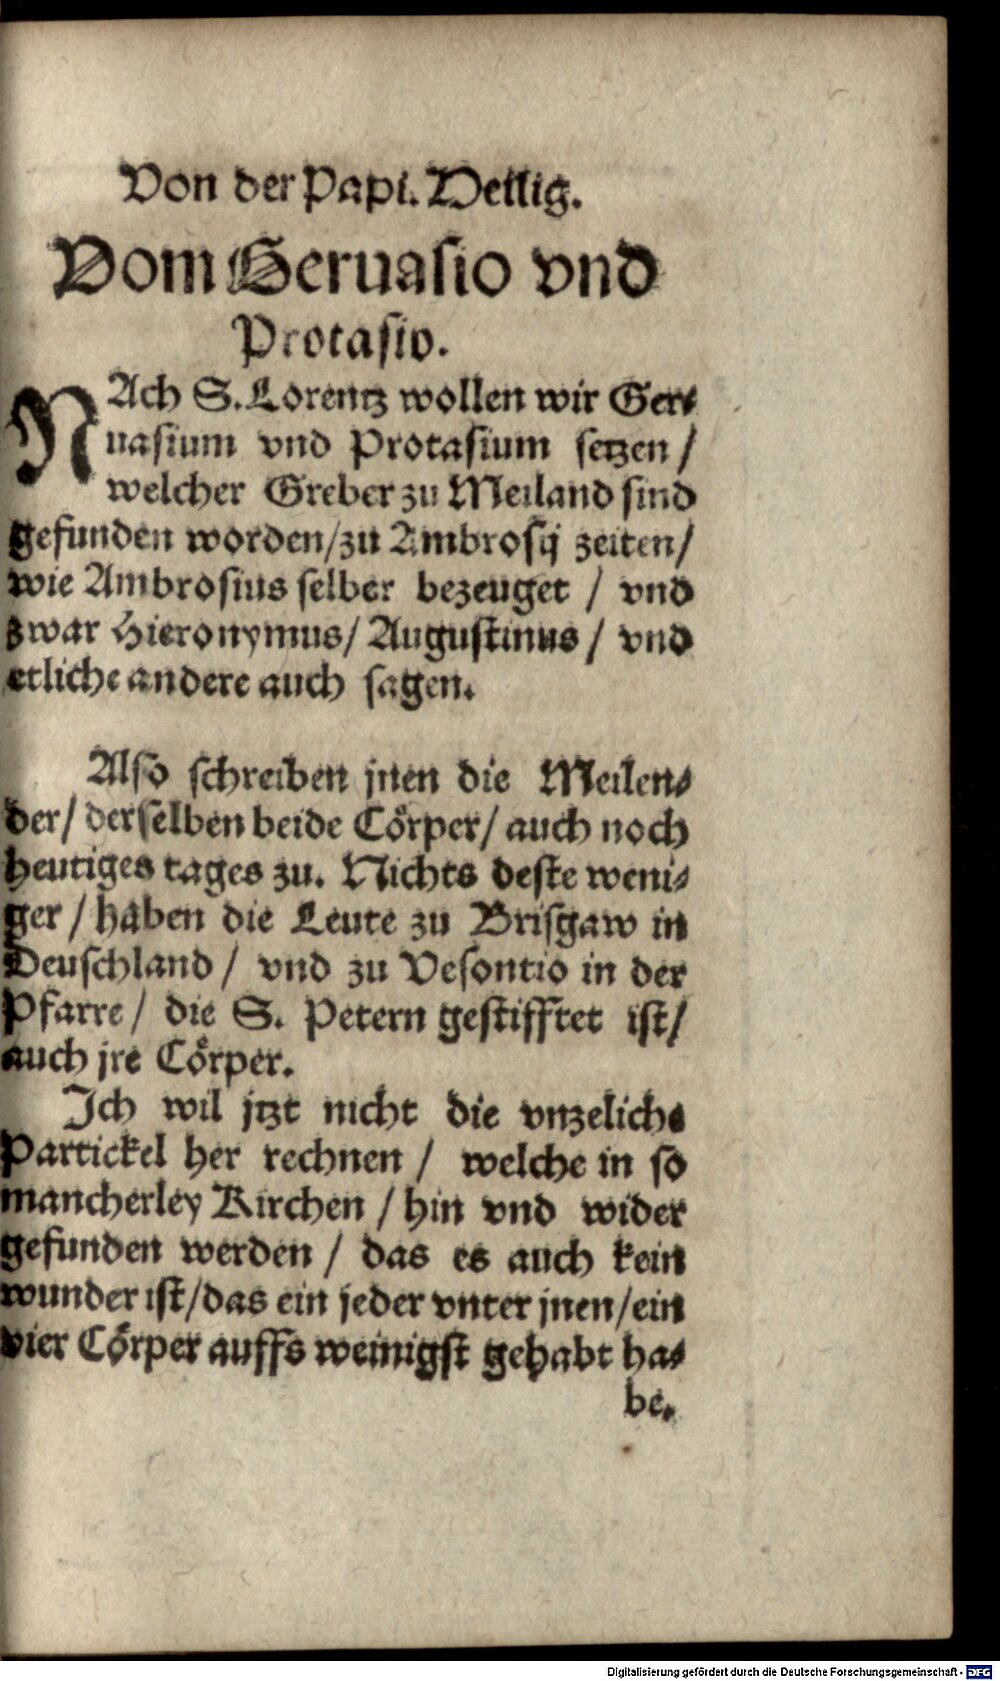 Von der Papi. Heilig.
Vom Geruasio vnd
Protasio.
NAch S. Lorentz wollen wir Ger⸗
uasium vnd Protasium setzen /
welcher Greber zu Meiland sind
gefunden worden/zu Ambrosij zeiten/
wie Ambrosius selber bezeuget / vnd
zwar Hieronymus/ Augustinus / vnd
etliche andere auch sagen.
Also schreiben jnen die Meilen⸗
der/ derselben beide Cörper/ auch noch
heutiges tages zu. Nichts deste weni⸗
ger / haben die Leute zu Brisgaw in
Deuschland / vnd zu Vesontio in der
Pfarre / die S. Petern gestifftet ist/
auch jre Cörper.
Ich wil jtzt nicht die vnzeliche
Partickel her rechnen / welche in so
mancherley Kirchen / hin vnd wider
gefunden werden / das es auch kein
wunder ist/das ein jeder vnter jnen/ein
vier Cörper auffs weinigst gehabt ha⸗
be.
Digitalisierung gefördert durch die Deutsche Forschungsgemeinschaft - DFG